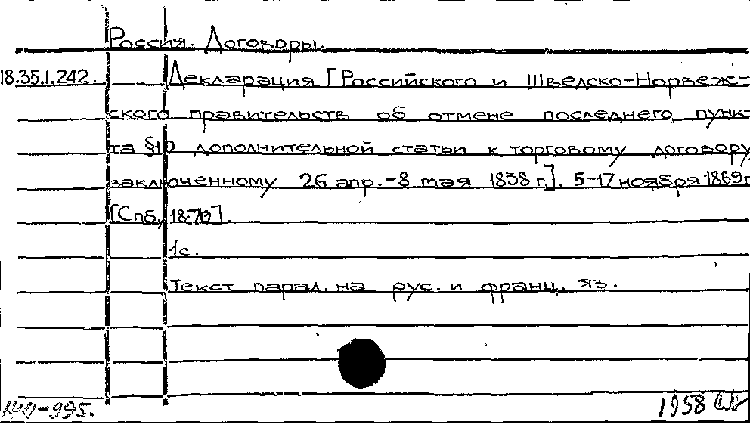 Россия. Договоры.
18.35.1.242. Декларация [Российского и Шведско-Норвеж-
ского правительств об отмене последнего пунк-
та §10 дополнительной статьи к торговому договору
заключенному 26 апр.-8 мая 1838 г.]. 5-17 ноября 1869 г
[Спб, 1870].
1с.
Текст парал. на рус. и франц. яз.
-995.
1958